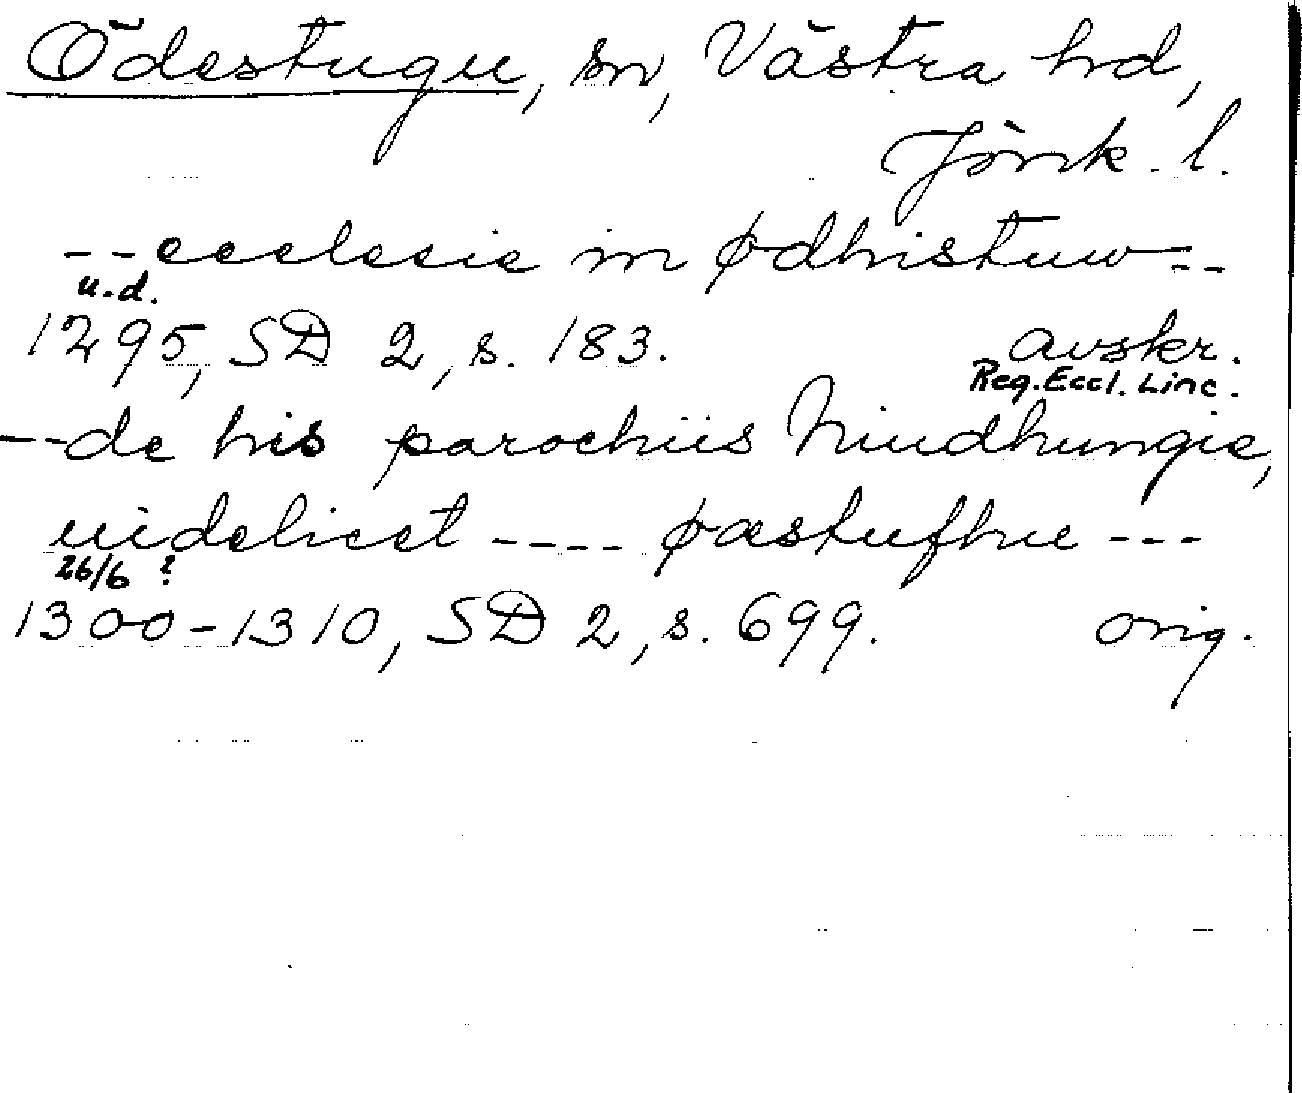 Ödestugu, sn, Västra hd,
Jönk. l.
--ecclesie in ødhistuw--
u.d.
1295, SD 2, s. 183. avskr.
Reg. Eccl. Linc.
--de his parochiis Niudhungie,
uidelicet ---- øæstufhue ---
26/6 ?
1300-1310, SD 2, s. 699. orig.